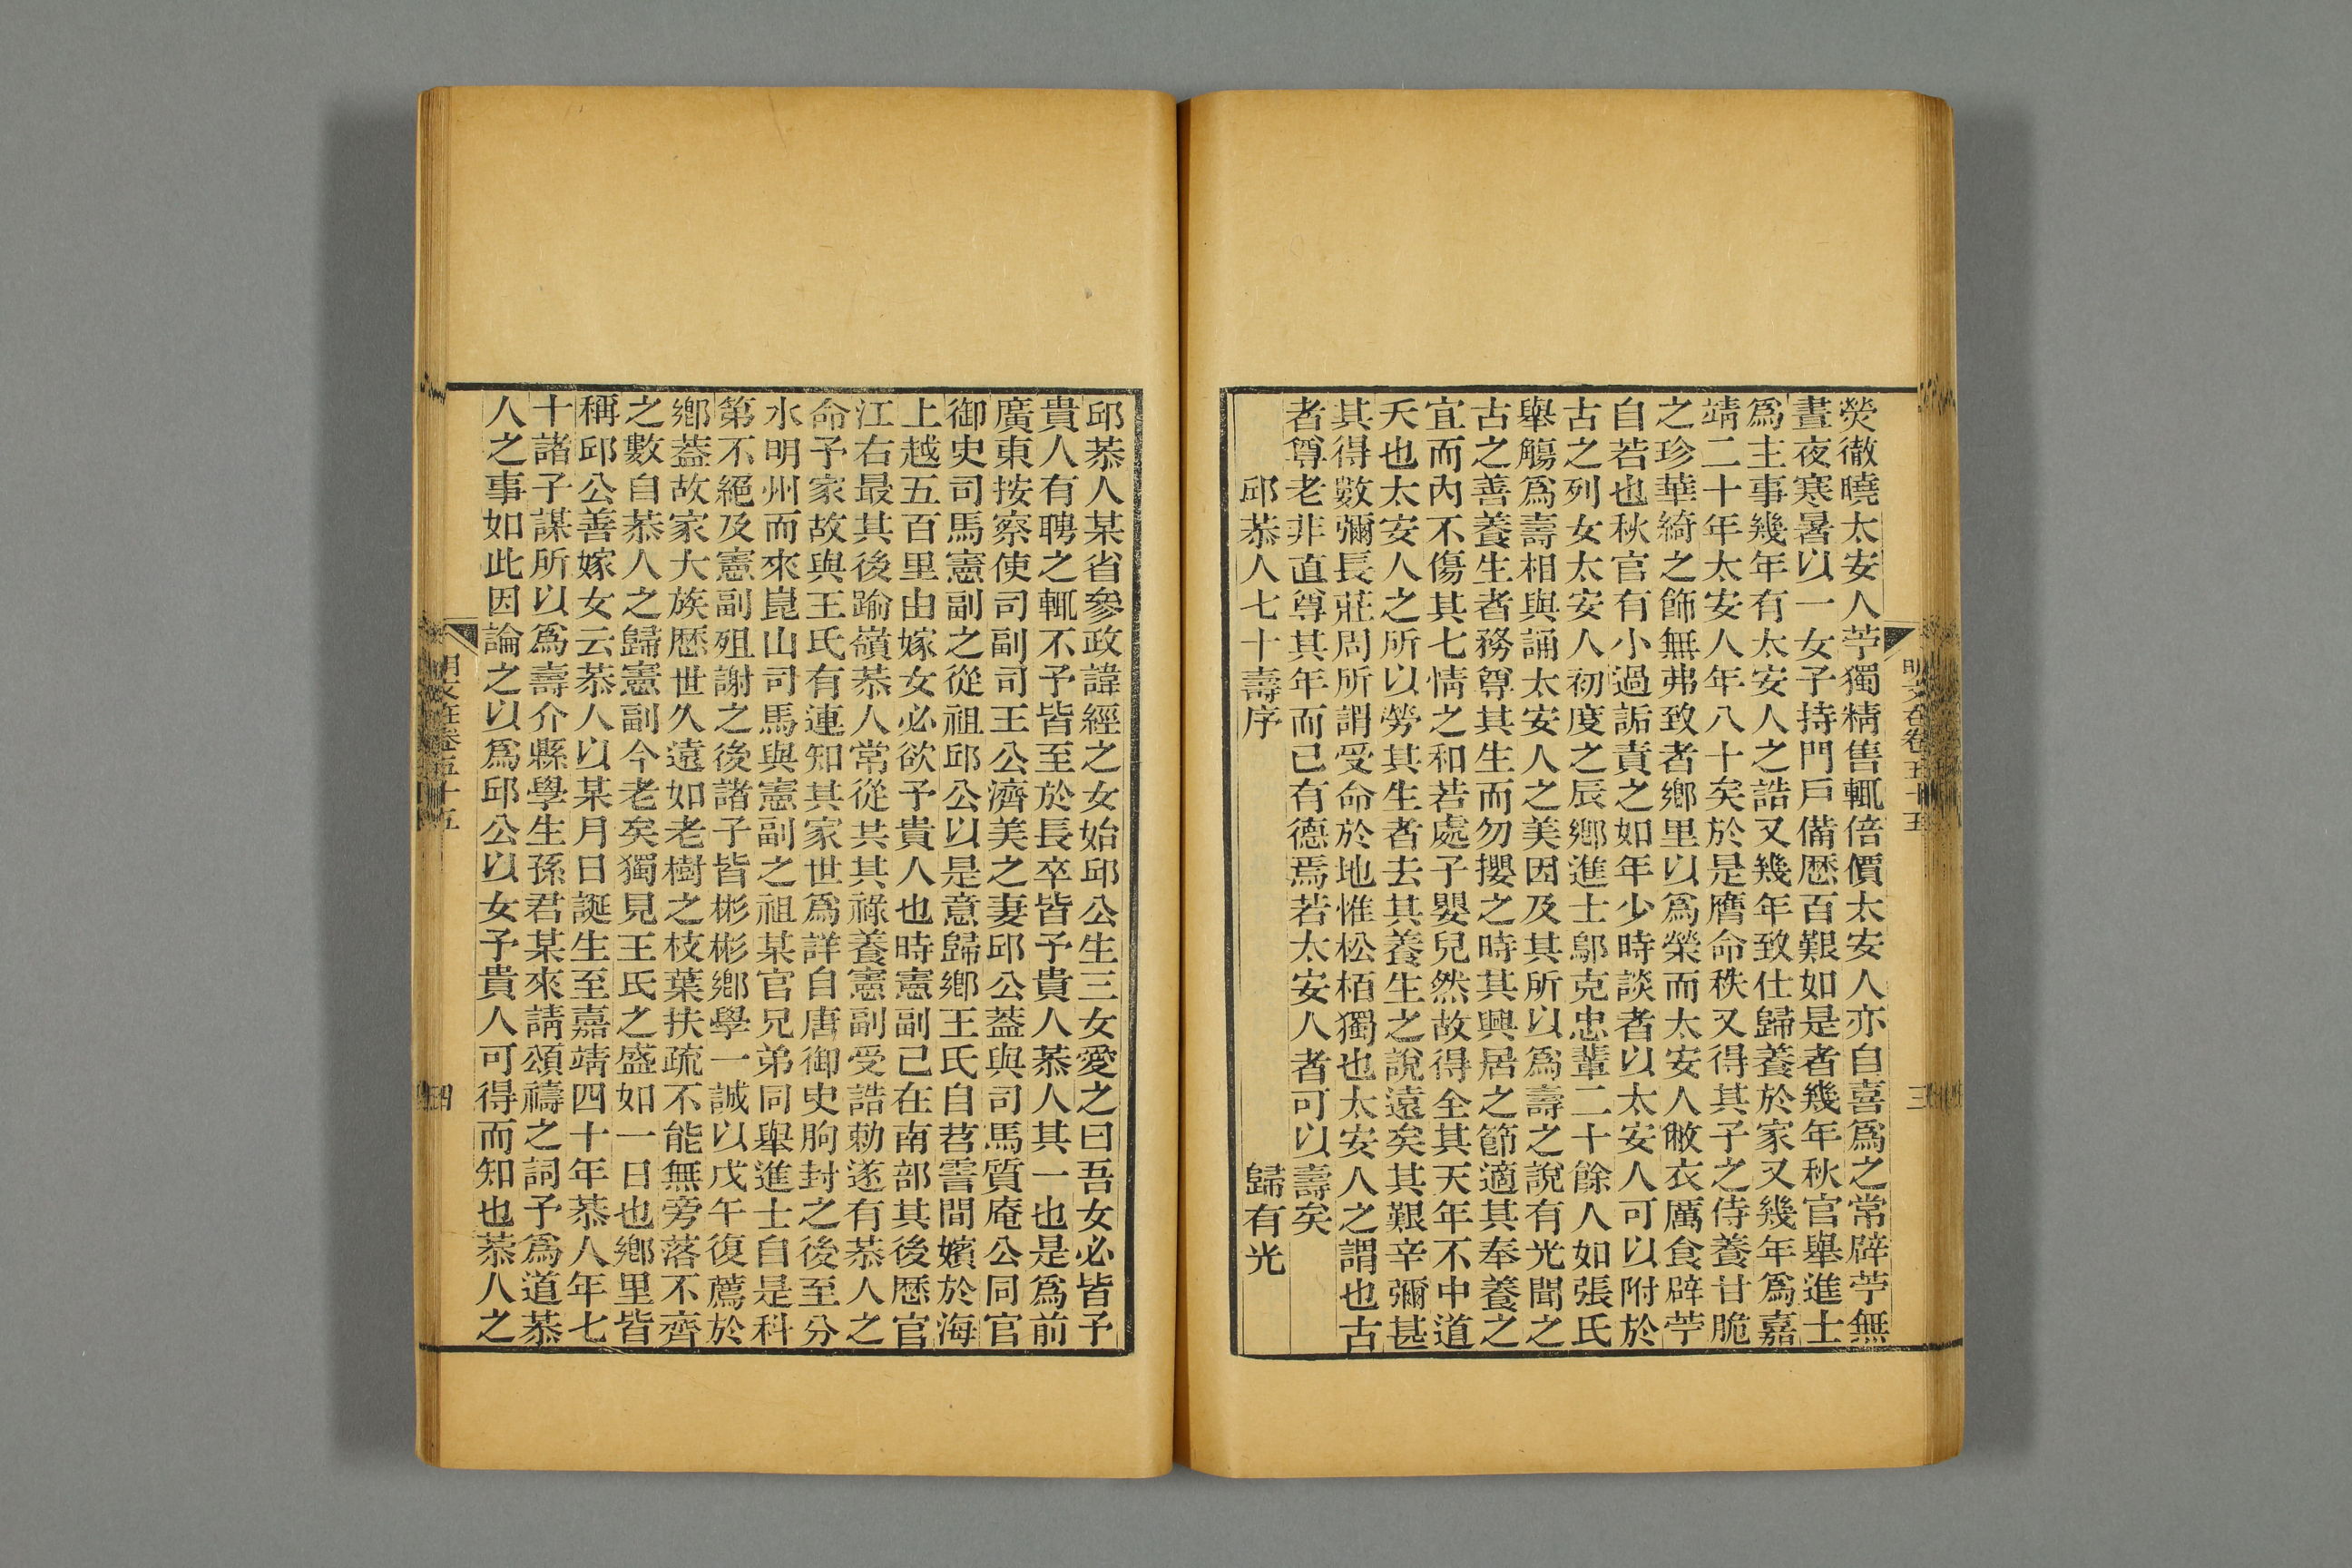 熒徹曉太安人苧獨精售輒倍價太安人亦自喜爲之常辟苧無
晝夜寒暑以一女子持門戶備歷百艱如是者幾年秋官舉進士
爲主事幾年有太安人之誥又幾年致仕歸養於家又幾年爲嘉
靖二十年太安人年八十矣於是膺命秩又得其子之侍養甘脆
之珍華綺之飾無弗致者鄉里以爲榮而太安人敝衣厲食辟苧
自若也秋官有小過詬責之如年少時談者以太安人可以附於
古之列女太安人初度之辰鄉進士鄔克忠輩二十餘人如張氏
舉觴爲壽相與誦太安人之美因及其所以爲壽之說有光聞之
古之善養生者務尊其生而勿攖之時其興居之節適其奉養之
宜而內不傷其七情之和若處子嬰兒然故得全其天年不中道
夭也太安人之所以勞其生者去其養生之說遠矣其艱辛彌甚
其得數彌長莊周所謂受命於地惟松栢獨也太安人之謂也古
者尊老非直尊其年而已有德焉若太安人者可以壽矣
邱恭人七十壽序 歸有光
明文在卷五十五 三
邱恭人某省參政諱經之女始邱公生三女愛之曰吾女必皆予
貴人有聘之輒不予皆至於長卒皆予貴人恭人其一也是爲前
廣東按察使司副司王公濟美之妻邱公葢與司馬質庵公同官
御史司馬憲副之從祖邱公以是意歸鄉王氏自苕霅間嬪於海
上越五百里由嫁女必欲予貴人也時憲副已在南部其後歷官
江右最其後踰嶺恭人常從共其祿養憲副受誥勅遂有恭人之
命予家故與王氏有連知其家世爲詳自唐御史朐封之後至分
水明州而來崑山司馬與憲副之祖某官兄弟同舉進士自是科
第不絕及憲副殂謝之後諸子皆彬彬鄉學一誠以戊午復薦於
鄉葢故家大族歷世久遠如老樹之枝葉扶疏不能無旁落不齊
之數自恭人之歸憲副今老矣獨見王氏之盛如一日也鄉里皆
稱邱公善嫁女云恭人以某月日誕生至嘉靖四十年恭人年七
十諸子謀所以爲壽介縣學生孫君某來請頌禱之詞予爲道恭
人之事如此因論之以爲邱公以女予貴人可得而知也恭人之
明文在卷五十五 四